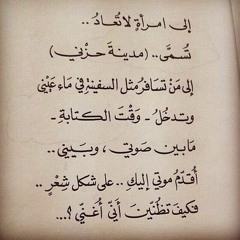 إلى امرأةٍ لا تُعادُ ..
تُسمَّى .. (مدينةَ حزْني)
إلى مَنْ تسافرُ مثلَ السفينةِ في ماءِ عَيْني
وتدخلُ - وَقْتَ الكتابةِ -
مَا بين صَوتي ، وبَيني ..
أُقدّمُ موتي إليكِ .. على شكلِ شِعْرٍ ..
فكيفَ تظنّينَ أنّي أُغنّي ؟...